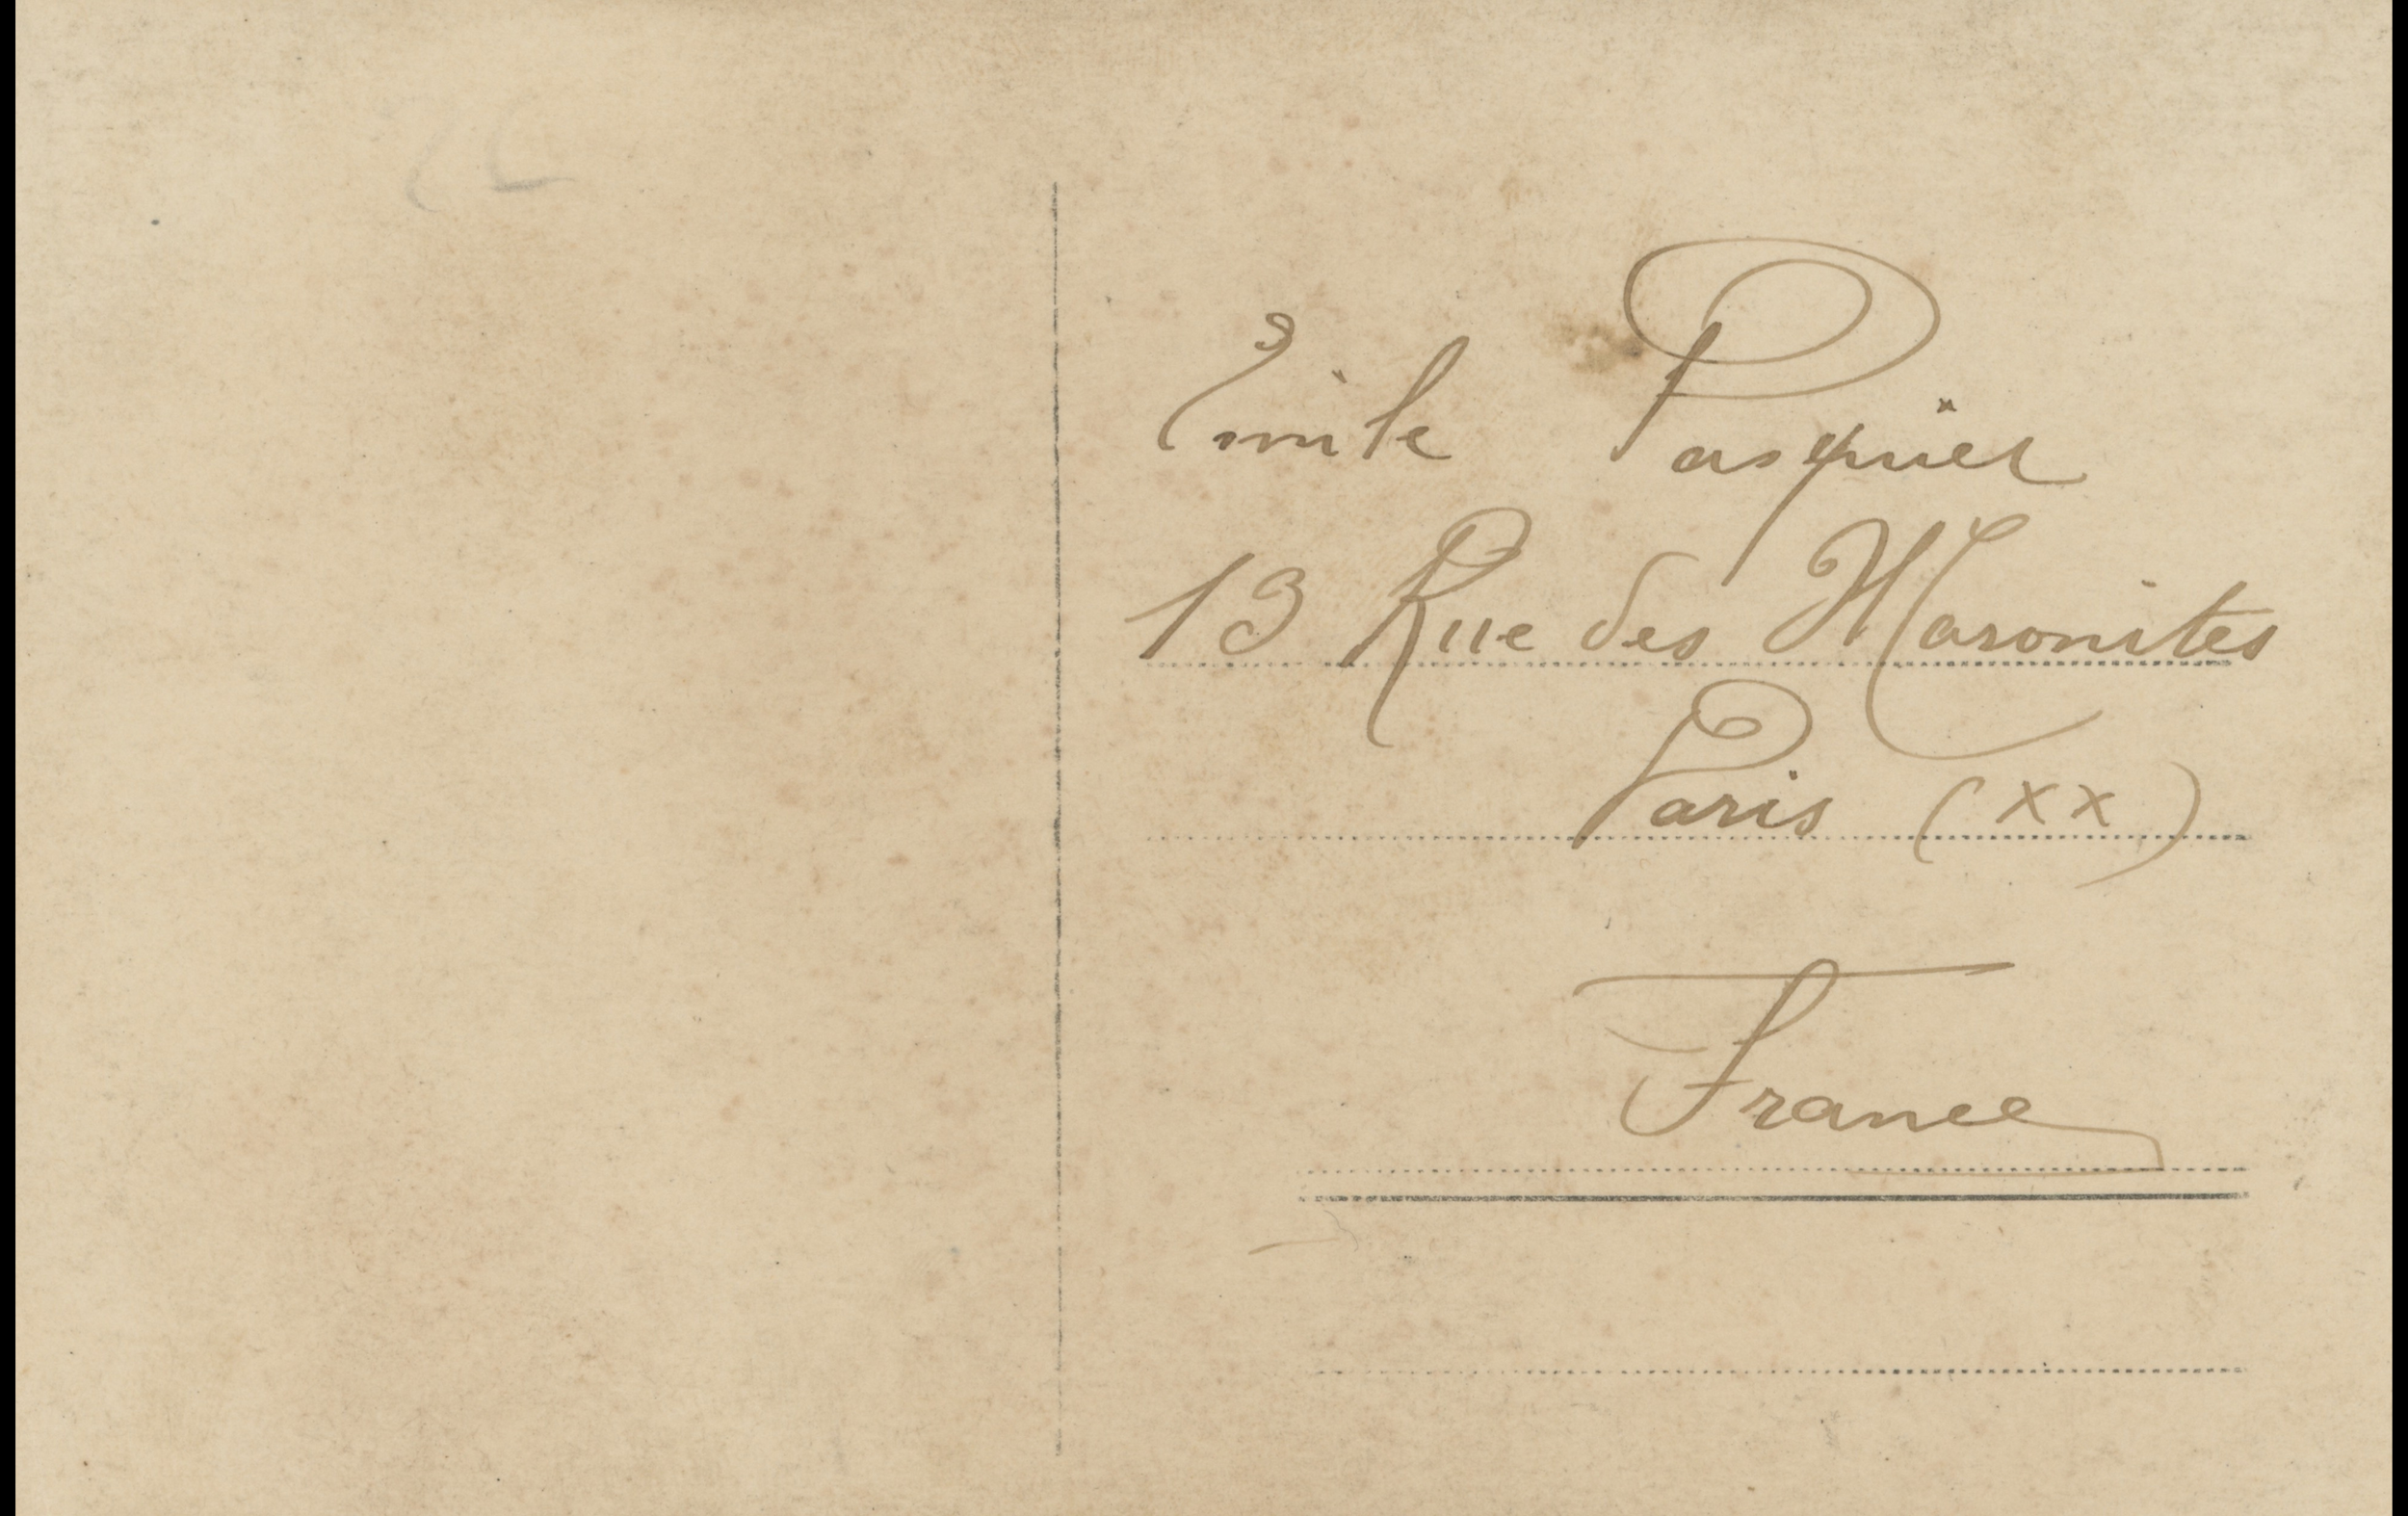 Emile Pasquier
13 Rue des Maronites
Paris (XX)
France